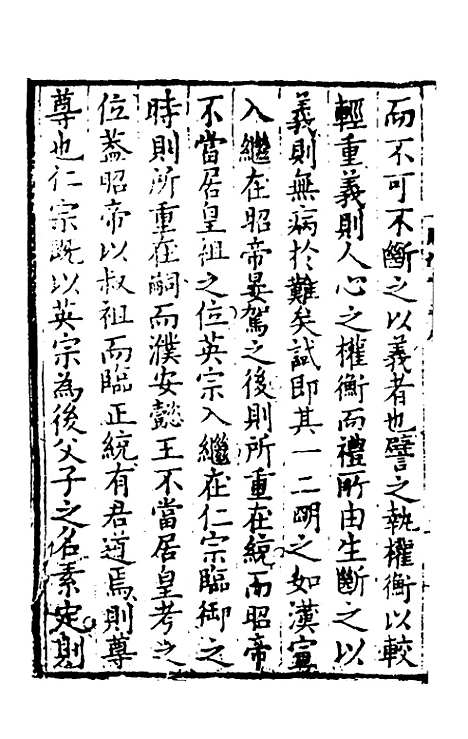 而不可不斷之以義者也譬之執權衡以較
輕重義則人心之權衡而禮所由生斷之以
義則無病於難矣試即其一二明之如漢宣
入繼在昭帝晏駕之後則所重在統而昭帝
不當居皇祖之位英宗入繼在仁宗臨御之
時則所重在嗣而濮安懿王不當居皇考之
位蓋昭帝以叔祖而臨正統有君道焉則尊
尊也仁宗既以英宗為後父子之名素定則